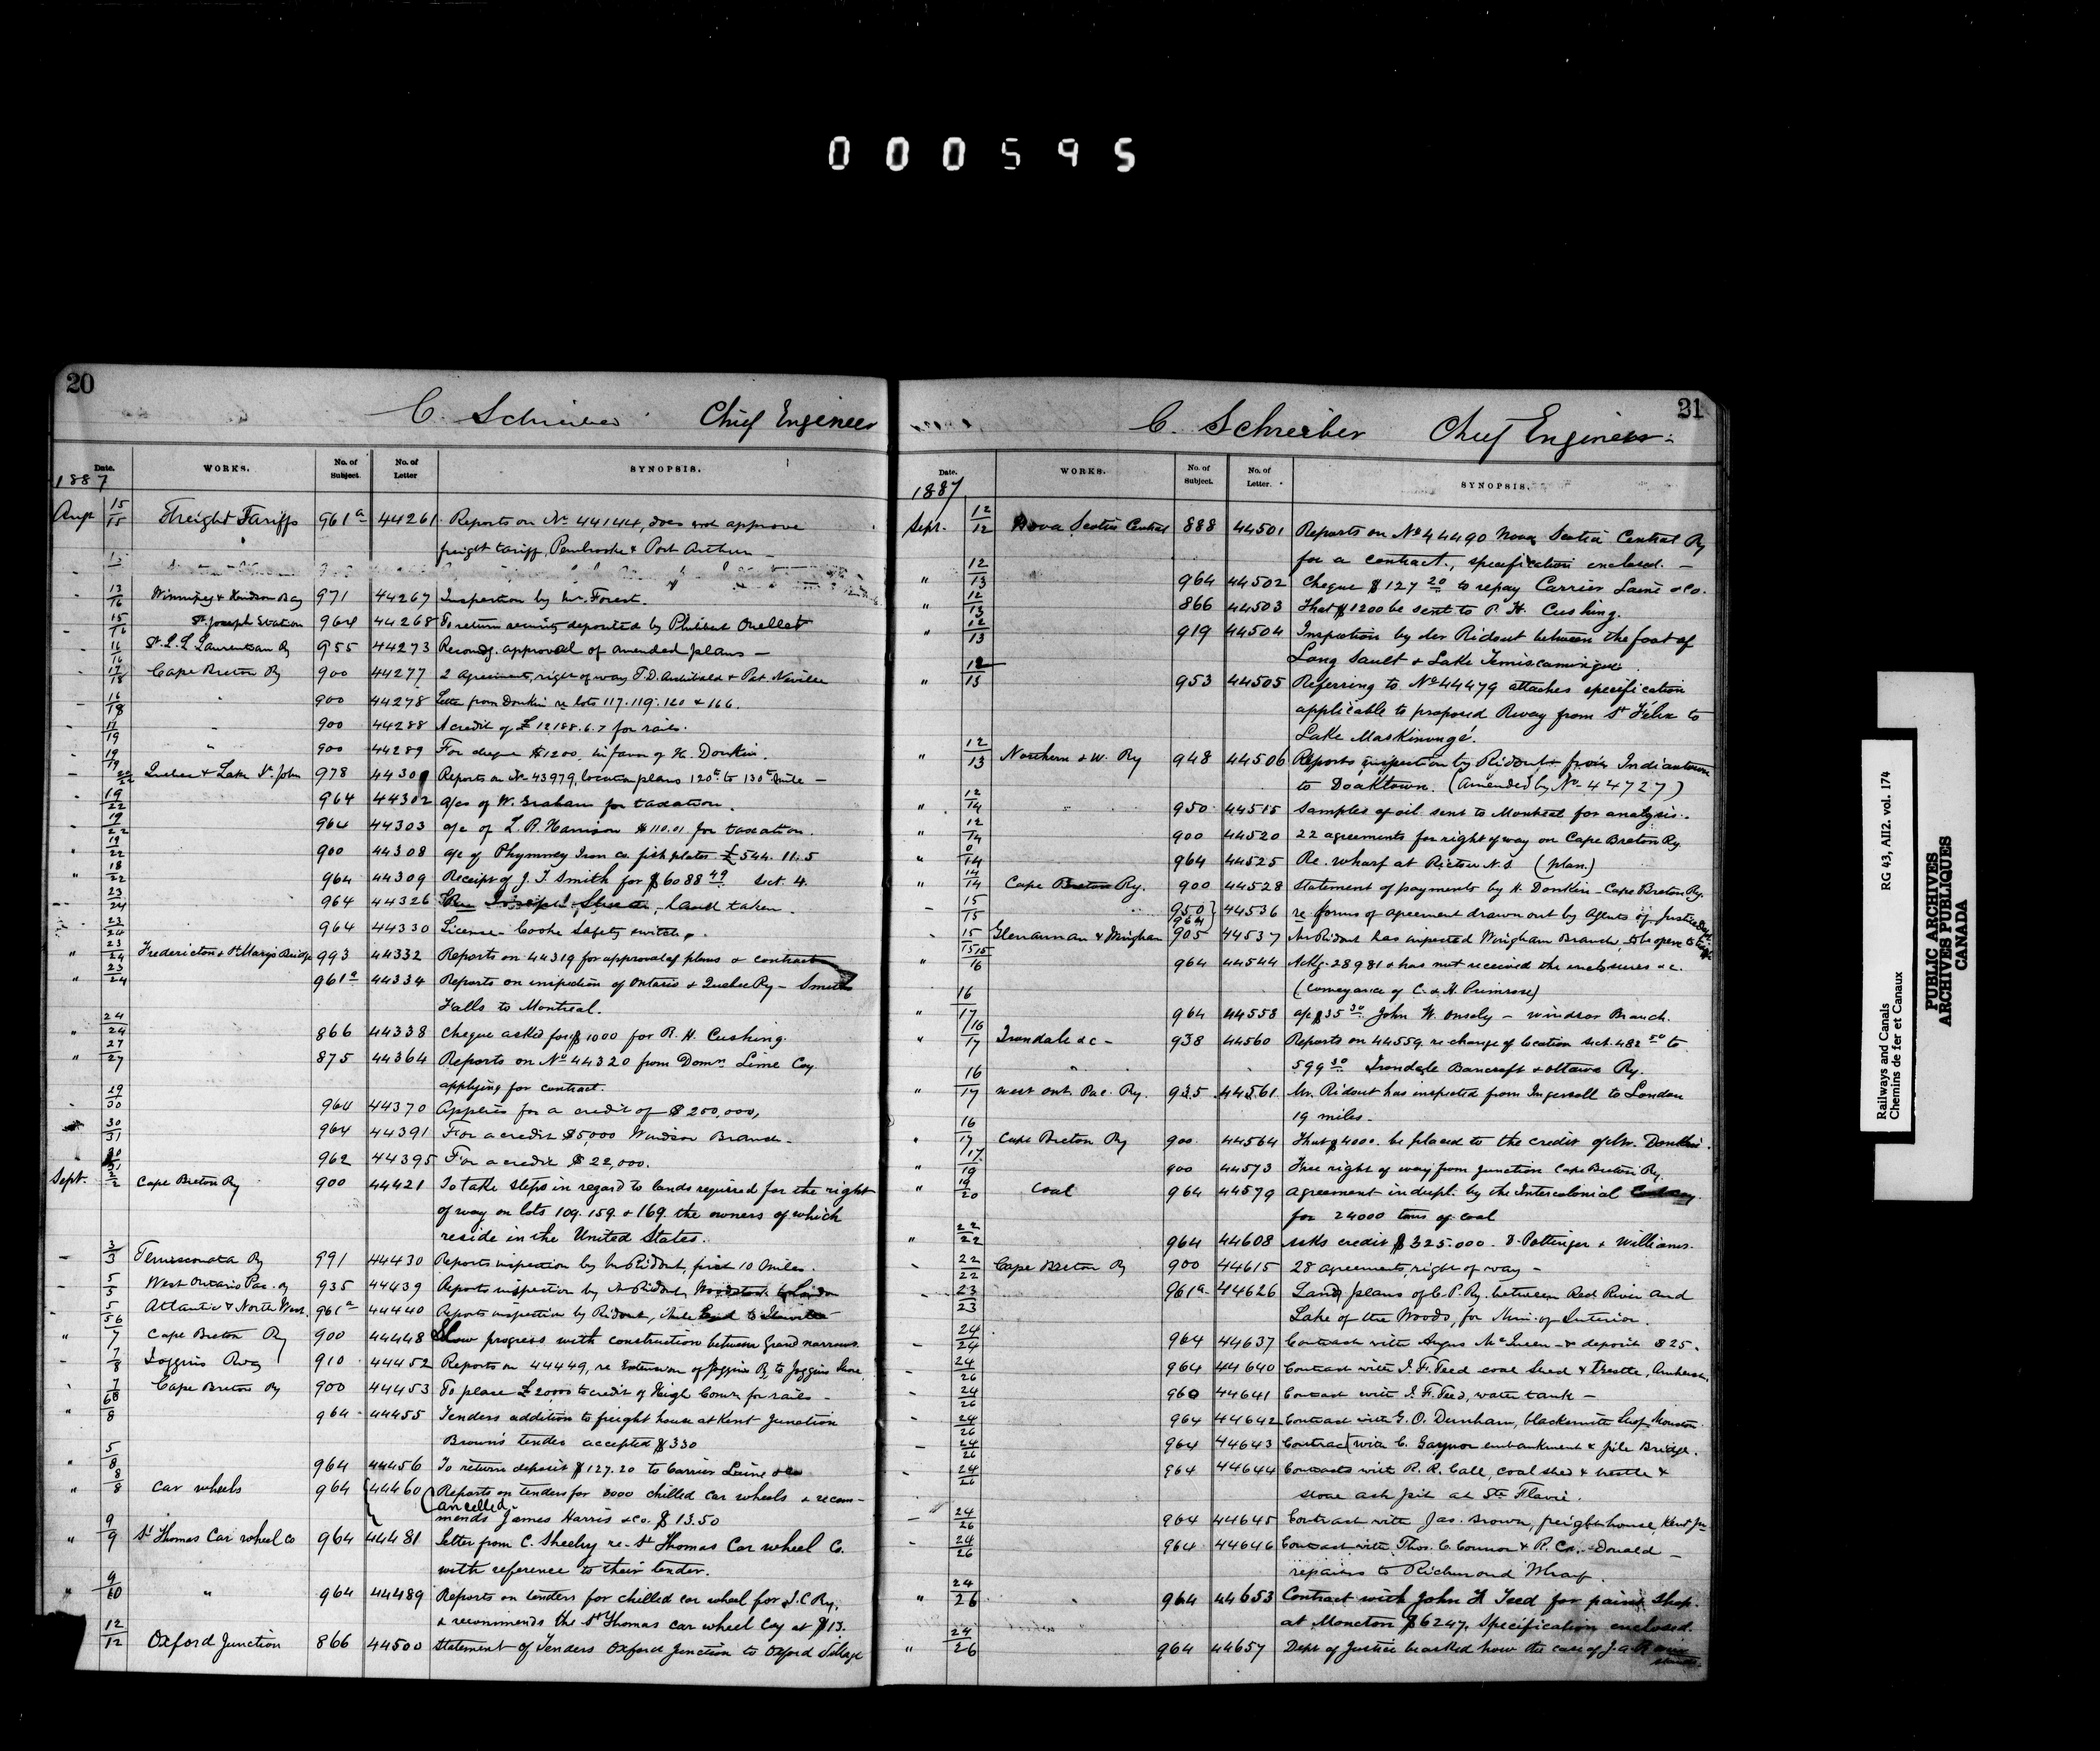 0 0 0 5 9 5
20
C. Schreiber Chief Engineer
Date. WORKS. No. of Subject. No. of Letter SYNOPSIS.
1887
Augt 15/15 Freight Tariffs 961a 44261 Reports on No 44144, does not approve
freight tariff, Pembroke & Port Arthur —
13/16 Winnipeg & Hudson Bay 971 44267 Inspection by Mr. Forest.
15/16 St. Joseph Station 964 44268 To return security deposited by Philibert Ouellet
16/16 St. L. L. Laurentian Ry 955 44273 Recomdg. approval of amended plans —
17/18 Cape Breton Ry 900 44277 2 agreements, right of way T.D. Archibald & Pat Neville
16/18 " 900 44278 Letter from Donkin re lots 117. 119. 120 & 166.
17/19 " 900 44288 A credit of £12188.6.7 for rails.
19/19 " 900 44289 For cheque $1200. in favor of H. Donkin.
20/22 Quebec & Lake St. John 978 44301 Reports on No 43979, location plans 120th to 130th mile —
19/22 964 44302 a/cs of W. Graham for taxation.
19/22 964 44303 a/c of L. R. Harrison $110.01 for taxation.
19/22 900 44308 a/c of Rhymney Iron Co. fish plates £544. 11. 5
18/22 964 44309 Receipt of J. T. Smith for $6088 49 Sect. 4.
23/24 964 44326 land taken.
23/24 964 44330 License Cooke Safety switch.
" 23/24 Fredericton & St Marys Bridge 993 44332 Reports on 44319 for approval of plans & contract
" 23/24 961a 44334 Reports on inspection of Ontario & Quebec Ry — Smiths
Falls to Montreal.
" 24/24 866 44338 Cheque asked for $1000 for R. H. Cushing.
" 27/27 875 44364 Reports on No 44320 from Domn. Lime Coy
applying for contract.
29/30 964 44370 Applies for a credit of $200,000,
30/31 964 44391 For a credit $5,000 Windsor Branch.
30/31 962 44395 For a credit $22,000.
Sept. 2/2 Cape Breton Ry 900 44421 To take steps in regard to lands required for the right
of way on lots 109. 159. & 169. the owners of which
reside in the United States.
3/3 Temiscouata Ry 991 44430 Reports inspection by Mr Ridout, first 10 miles.
5/5 West Ontario Pac. Ry 935 44439 Reports inspection by Mr Ridout, Woodstock to London
5/5 Atlantic & North West. 961a 44440 Reports inspection by Ridout, Mile End to
" 6/7 Cape Breton Ry 900 44448 Slow progress with construction between Grand narrows.
7/8 Joggins Rway 910 44452 Reports on 44449, re Extension of Joggins Ry to Joggins Shore.
7/8 Cape Breton Ry 900 44453 To place £2000 to credit of High Comr. for rails —
" 6/8 964 44455 Tenders addition to freight house at Kent Junction
Brown's tender accepted $330
" 5/8 964 44456 To return deposit $127.20 to Carrier Laine & Co
" 8/8 Car wheels 964 44460 Reports on tenders for 3000 chilled car wheels & recom-
Cancelled
mends James Harris & Co. $13.50
" 9/9 St Thomas Car wheel Co 964 44481 Letter from C. Sheehy re St Thomas Car wheel Co.
with reference to their tender.
" 9/10 " 964 44489 Reports on tenders for chilled car wheel for I.C.Ry.
& recommends the St Thomas car wheel Coy at $13.
12/12 Oxford Junction 866 44500 Statement of Tenders Oxford Junction to Oxford Village
21
C. Schreiber Chief Engineer
Date. WORKS. No. of Subject. No. of Letter. SYNOPSIS.
1887
Sept. 12/12 Nova Scotia Central 888 44501 Reports on No 44490 Nova Scotia Central Ry
for a contract, specification enclosed. —
" 12/13 964 44502 Cheque $127 20 to repay Carrier Laine & Co.
" 12/13 866 44503 That $1200 be sent to R. H. Cushing.
" 12/13 919 44504 Inspection by Mr Ridout between the foot of
Long Sault & Lake Temiscamingue.
" 12/13 953 44505 Referring to No 44479 attaches specification
applicable to proposed Rway from St Felix to
Lake Maskinongé.
" 12/13 Northern & W. Ry 948 44506 Reports inspection by Ridout from Indiantown
to Doaktown. (Amended by No 44727)
" 12/14 950 44515 Samples of oil sent to Montreal for analysis.
" 12/14 900 44520 22 agreements for right of way on Cape Breton Ry.
" 0/14 964 44525 Re. wharf at Pictou N.S. (plan.)
" 14/14 Cape Breton Ry. 900 44528 Statement of payments by H. Donkin — Cape Breton Ry.
15/15 950 964 44536 re forms of agreement drawn out by Agents of Justice Dept.
15/15 Glenannan & Wingham 905 44537 Mr Ridout has inspected Wingham Branch, to be opened to
" 15/16 964 44544 Ackg. 28981 & has not received the enclosures &c.
(Conveyance of C. & H. Primrose)
" 16/17 964 44558 a/c $35 30 John W. Ousely — Windsor Branch.
" 16/17 Irondale &c — 938 44560 Reports on 44559 re change of location sect. 482 50 to
599 30 Irondale Bancroft & Ottawa Ry.
" 16/17 West Ont. Pac. Ry. 935 44561 Mr. Ridout has inspected from Ingersoll to London
19 miles.
16/17 Cape Breton Ry 900 44564 That $4000. be placed to the credit of Mr. Donkin.
" 17/19 900 44573 Free right of way from junction Cape Breton Ry.
" 19/20 Coal 964 44579 agreement in dupl. by the Intercolonial Coal Coy
for 24000 tons of coal
" 22/22 964 44608 Asks credit $325.000. D. Pottinger & Williams.
22/22 Cape Breton Ry 900 44615 28 agreements, right of way —
23/23 961a 44626 Land plans of C.P.Ry. between Red River and
Lake of the Woods, for Min. of Interior.
24/24 964 44637 Contract with Angus McQueen & deposit $25.
24/26 964 44640 Contract with J. F. Teed coal shed & trestle, Amherst.
24/26 960 44641 Contract with J. F. Teed, water tank —
24/26 964 44642 Contract with G. O. Dunham, blacksmith shop Moncton.
24/26 964 44643 Contract with C. Gaynor embankment & pile Bridge.
24/26 964 44644 Contracts with R. R. Call, coal shed & trestle &
stone ash pit at Ste Flavie.
24/26 964 44645 Contract with Jas. Brown, freight house, Kent Jn
24/26 964 44646 Contract with Thos. C. Connor & R. Donald —
repairs to Richmond Wharf.
" 24/26 964 44653 Contract with John F Teed for paint shop.
at Moncton $6247. Specification enclosed.
" 24/26 964 44657 Dept of Justice be asked how the case of J. A.
stands.
Railways and Canals RG 43, AII2. vol. 174
Chemins de fer et Canaux
PUBLIC ARCHIVES
ARCHIVES PUBLIQUES
CANADA